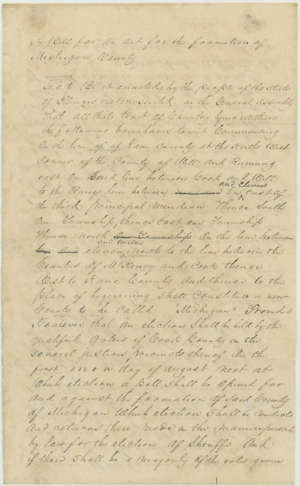 A Bill for An act for the formation of
Michigan County
Sec 1 Be it enacted by the people of the State
of Illinois represented in the General Assembly
That all that tract of Country lying within
the following boundaries to wit Commencing
on the line of Kane County at the North West
Corner of the County of Will and Running
east on Said line between Cook and Will
to the Range line between and eleven East of
the third principal Meridian Thence South
one Township, thence East one Township
Thence North on the line between
and twelve
eleven North to the line between the
Counties of McHenry and Cook thence
West to Kane County And thence to the
place of beginning Shall Constitute a new
County to be Called "Michigan" Provided
However that An election Shall be held by the
qualified voters of Cook County in the
Several precincts thereof On the
first Monday of August next at
Which election a poll Shall be opened for
and against the formation of Said County
of Michigan Which election Shall be Conducted
and returns there made in the manner prescribed
by law for the election of Sheriffs And
if there Shall be a majority of the votes given